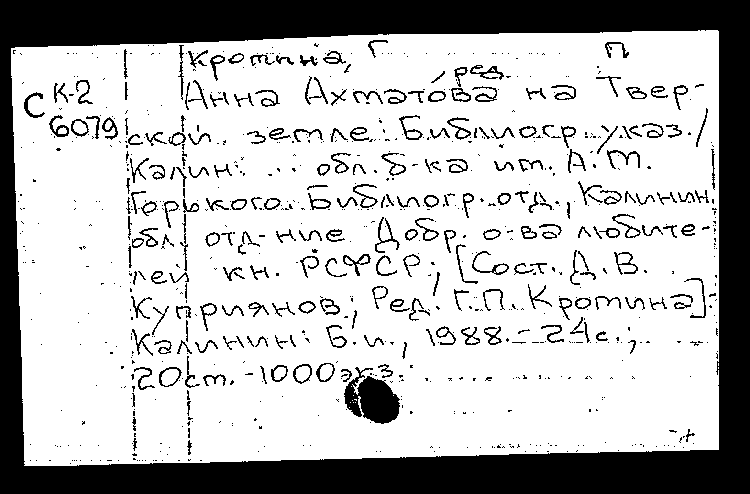 Кротина, Г П
ред.
С К-2
6079
Анна Ахматова на Твер-
ской земле: Библиогр. указ. /
Калин. обл. б-ка им. А. М.
Горького. Библиогр. отд., Калинин.
обл. отд-ние Добр. о-ва любите-
лей кн. РСФСР; [Сост. Д. В.
Куприянов; Ред. Г. П. Кротина].-
Калинин: Б. и., 1988.- 24 с.;
20 см. - 1000 экз.